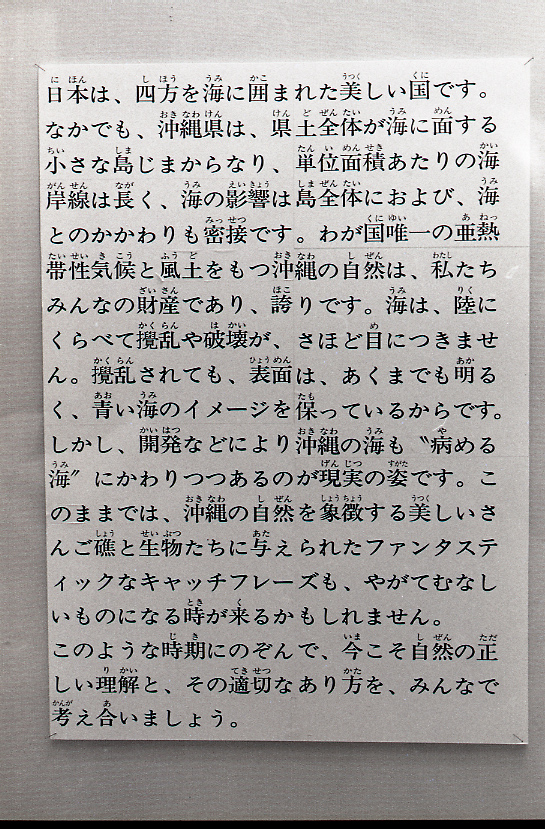 日本は、四方を海に囲まれた美しい国です。
なかでも、沖縄県は、県土全体が海に面する
小さな島じまからなり、単位面積あたりの海
岸線は長く、海の影響は島全体におよび、海
とのかかわりも密接です。わが国唯一の亜熱
帯性気候と風土をもつ沖縄の自然は、私たち
みんなの財産であり、誇りです。海は、陸に
くらべて攪乱や破壊が、さほど目につきませ
ん。攪乱されても、表面は、あくまでも明る
く、青い海のイメージを保っているからです。
しかし、開発などにより沖縄の海も〝病める
海〟にかわりつつあるのが現実の姿です。こ
のままでは、沖縄の自然を象徴する美しいさ
んご礁と生物たちに与えられたファンタステ
ィックなキャッチフレーズも、やがてむなし
いものになる時が来るかもしれません。
このような時期にのぞんで、今こそ自然の正
しい理解と、その適切なあり方を、みんなで
考え合いましょう。